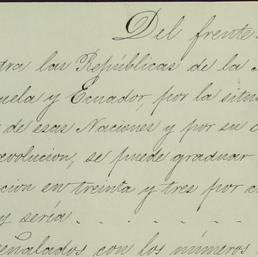 Del frente.
tra las Repúblicas de la
uela y Ecuador, por la situ
de esas Naciones y por su
evolucion, se puede graduar
cion en treinta y tres por c
y sería . . . . . .
eñalados con los números